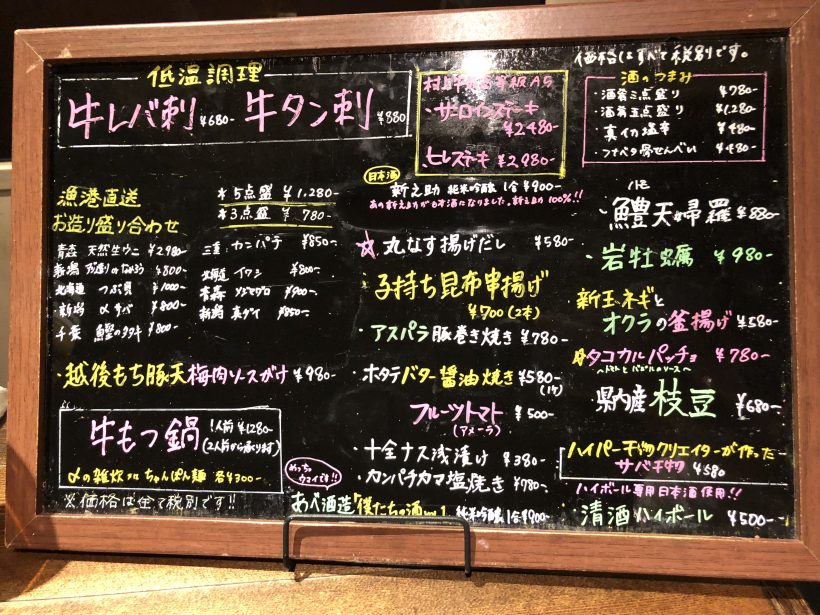 低温調理
牛レバ刺 ¥680- 牛タン刺 ¥880
漁港直送
お造り盛り合わせ
5点盛 ¥1,280-
3点盛 ¥780-
青森 天然生ウニ ¥2,980-
新潟 お造りのなめろう ¥800-
北海道 つぶ貝 ¥1000-
・新潟 〆サバ ¥800-
千葉 鰹のタタキ ¥800-
三重 カンパチ ¥850-
北海道 イワシ ¥800-
青森 ソジマグロ ¥900-
新潟 真ダイ ¥850-
・越後もち豚天梅肉ソースがけ ¥980-
牛もつ鍋 1人前 ¥1280-
(2人前から承ります)
〆の雑炊 or ちゃんぽん麺 各¥300-
※価格は全て税別です!!
村上牛 等級A5
・サーロインステーキ
¥2,480-
ヒレステーキ ¥2,980-
日本酒
新之助 純米吟醸 1合 ¥900-
あの新之助が日本酒になりました。新之助100%!!
☆丸なす揚げだし ¥580-
・子持ち昆布串揚げ
¥700(2本)
・アスパラ豚巻き焼き ¥780-
・ホタテバター醤油焼き ¥580-
フルーツトマト ¥500-
(アメーラ)
・十全ナス浅漬け ¥380-
・カンパチカマ塩焼き ¥780-
めっちゃウマイです!!
あべ酒造「僕たちの酒vol.1 純米吟醸 1合 ¥900-
価格はすべて税別です。
酒のつまみ
・酒肴三点盛り ¥780-
・酒肴五点盛り ¥1,280-
・真イカ塩辛 ¥480-
・フナベタ骨せんべい ¥480-
ハモ
・鱧天婦羅 ¥880-
・岩牡蠣 ¥980-
・新玉ネギと
オクラの釜揚げ ¥580-
☆タコカルパッチョ ¥780-
〜トマトとバジルのソース〜
県内産 枝豆 ¥680-
ハイパー干物クリエイターが作った
サバ干物 ¥580
ハイボール専用日本酒使用!!
・清酒ハイボール ¥500-